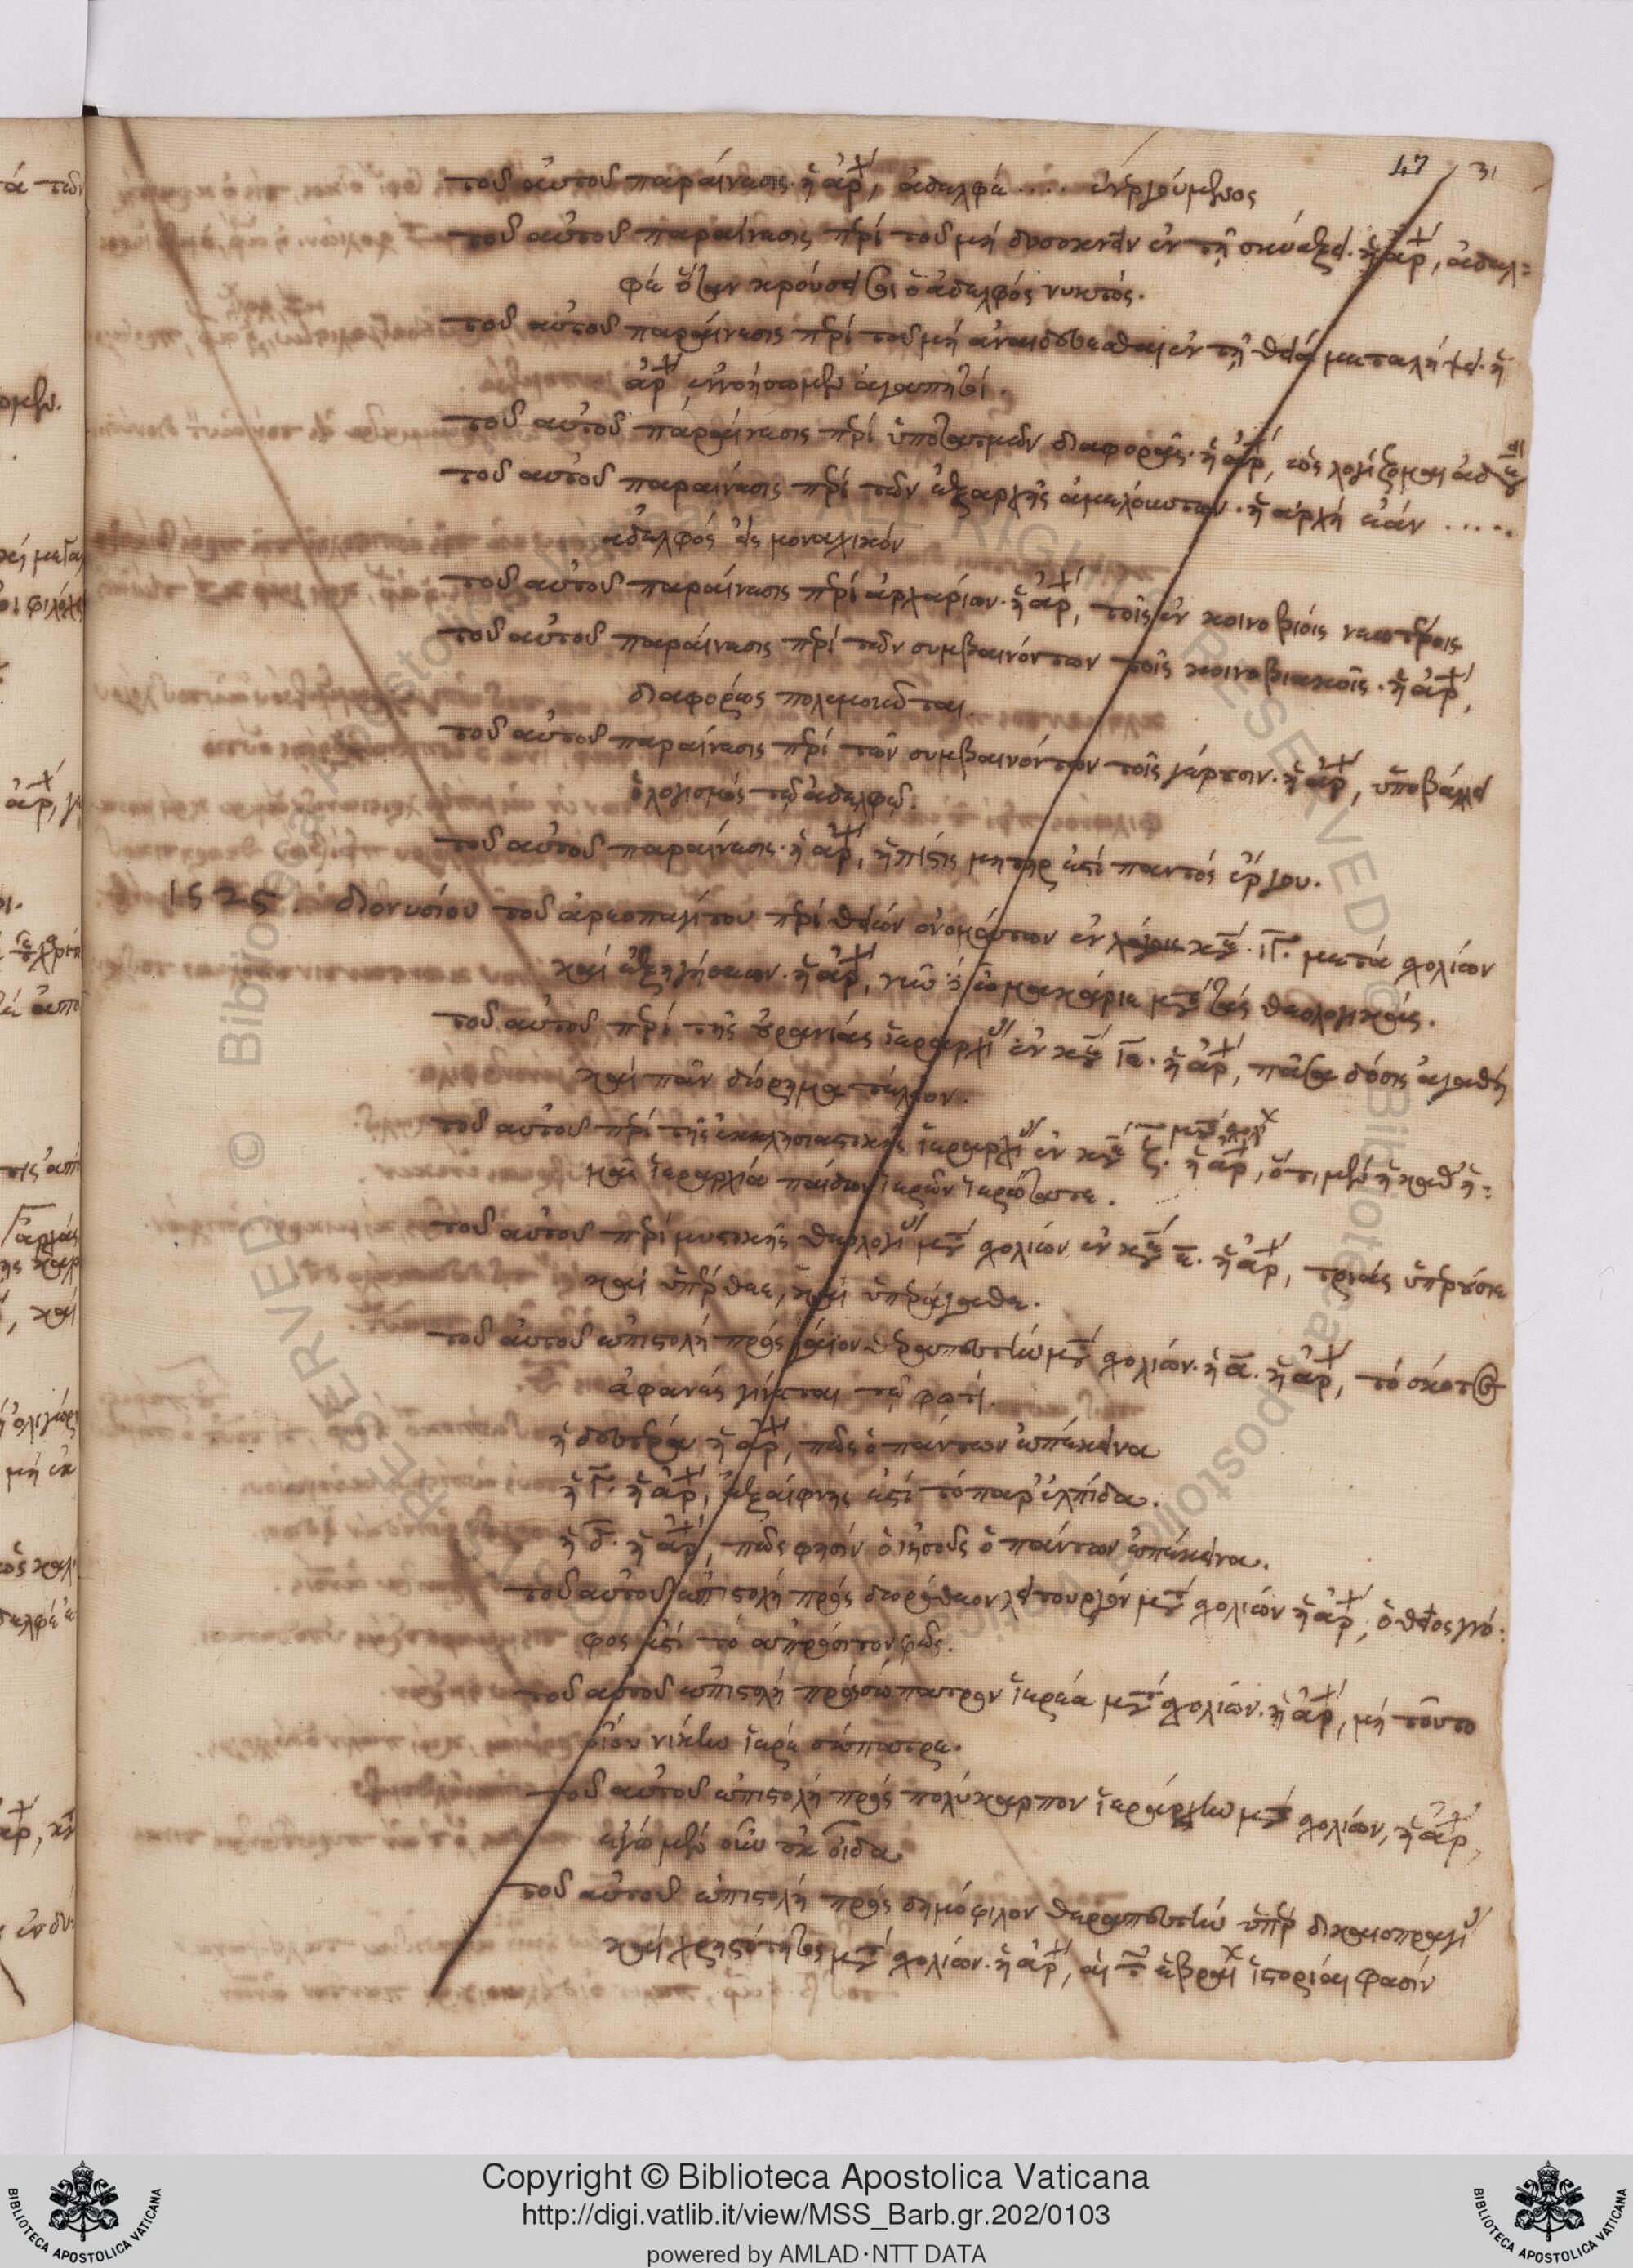 47 31
τοῦ αὐτοῦ παραίνεσις· ἡ ἀρχ, ἀδελφέ .... ἐνεργούμενος
τοῦ αὐτοῦ παραίνεσις περὶ τοῦ μὴ δυσοκνεῖν ἐν τῇ συνάξει· ἡ ἀρχ, ἀδελ=
φέ ὅταν κρούσει σοι ὁ ἀδελφός νυκτός.
τοῦ αὐτοῦ παραίνεσις περὶ τοῦ μὴ ἀναιδεύεσθαι ἐν τῇ θεία μεταλήψει· ἡ
ἀρχ, ἐννοήσωμεν ἀγαπητοί.
τοῦ αὐτοῦ παραίνεσις περὶ διαφορᾶς· ἡ ἀρχ, ὡς λογίζομαι
τοῦ αὐτοῦ παραίνεσις περὶ τῶν ἐξαρχῆς ἀμελούντων· ἡ ἀρχή ἐάν .....
ἀδελφός εἰς μοναχικόν
τοῦ αὐτοῦ παραίνεσις περὶ ἀρχαρίων· ἡ ἀρχ, τοῖς ἐν κοινοβίοις νεωτέροις
τοῦ αὐτοῦ παραίνεσις περὶ τῶν συμβαινόντων τοῖς κοινοβιακοῖς· ἡ ἀρχ,
διαφόρως πολεμοῦνται.
τοῦ αὐτοῦ παραίνεσις περὶ τῶν συμβαινόντων τοῖς γέρουσιν· ἡ ἀρχ, ὑποβάλλει
ὁ λογισμός τῷ ἀδελφῷ.
τοῦ αὐτοῦ παραίνεσις· ἡ ἀρχ, ἡ πίστις μητηρ ἐστί παντός ἔργου.
1525. διονυσίου τοῦ ἀρεοπαγίτου περὶ θείων ὀνομάτων ἐν κεφ ιγ. μετά σχολίων
καί ἐξηγήσεων· ἡ ἀρχ, νῦν δέ ὦ μακάριε μετ τάς θεολογικάς.
τοῦ αὐτοῦ περὶ τῆς οὐρανίας ἱεραρχί ἐν κεφ ιε· ἡ ἀρχ, πᾶσα δόσις ἀγαθή
καί πᾶν δώρημα τέλειον.
τοῦ αὐτοῦ περὶ τῆς ἐκκλησιαστικῆς ἱεραρχί ἐν κεφ ζ. μετ σχολ ἡ ἀρχ, ὅτι μέν ἡ καθ' ἡ=
μᾶς ἱεραρχία παίδων ἱερῶν ἱερώτατε.
τοῦ αὐτοῦ περὶ μυστικῆς θεολογί μετ σχολίων ἐν κεφ ε. ἡ ἀρχ, τριάς ὑπερούσιε
καί ὑπέρθεε, καί ὑπεράγαθε.
τοῦ αὐτοῦ ἐπιστολή πρός γάϊον θεραπευτήν μετ σχολίων. ἡ α. ἡ ἀρχ, τό σκότος
ἀφανές γίνεται τῷ φωτί.
ἡ δευτέρα ἡ ἀρχ, πῶς ὁ πάντων ἐπέκεινα
ἡ γ. ἡ ἀρχ, ἐξαίφνης ἐστί τό παρ' ἐλπίδα.
ἡ δ. ἡ ἀρχ, πῶς φησίν ὁ ἰησοῦς ὁ πάντων ἐπέκεινα.
τοῦ αὐτοῦ ἐπιστολή πρός δωρόθεον λειτουργόν μετ σχολίων ἡ ἀρχ, ὁ θεῖος γνό:
φος ἐστί τό ἀπρόσιτον φῶς.
τοῦ αὐτοῦ ἐπιστολή πρός σώπατρον ἱερέα μετ σχολίων. ἡ ἀρχ, μή τοῦτο
οἴου νίκην ἱερέ σώπατρε.
τοῦ αὐτοῦ ἐπιστολή πρός πολύκαρπον ἱεράρχην μετ σχολίων, ἡ ἀρχ,
ἐγώ μέν οὖν οὐκ οἶδα
τοῦ αὐτοῦ ἐπιστολή πρός δημόφιλον θεραπευτήν ὑπέρ δικαιοπραγί
καί χρηστότητος μετ σχολίων. ἡ ἀρχ, αἱ τῶν ἑβραί ἱστορίαι φασίν
Copyright © Biblioteca Apostolica Vaticana
http://digi.vatlib.it/view/MSS_Barb.gr.202/0103
powered by AMLAD·NTT DATA
BIBLIOTECA APOSTOLICA VATICANA
BIBLIOTECA APOSTOLICA VATICANA